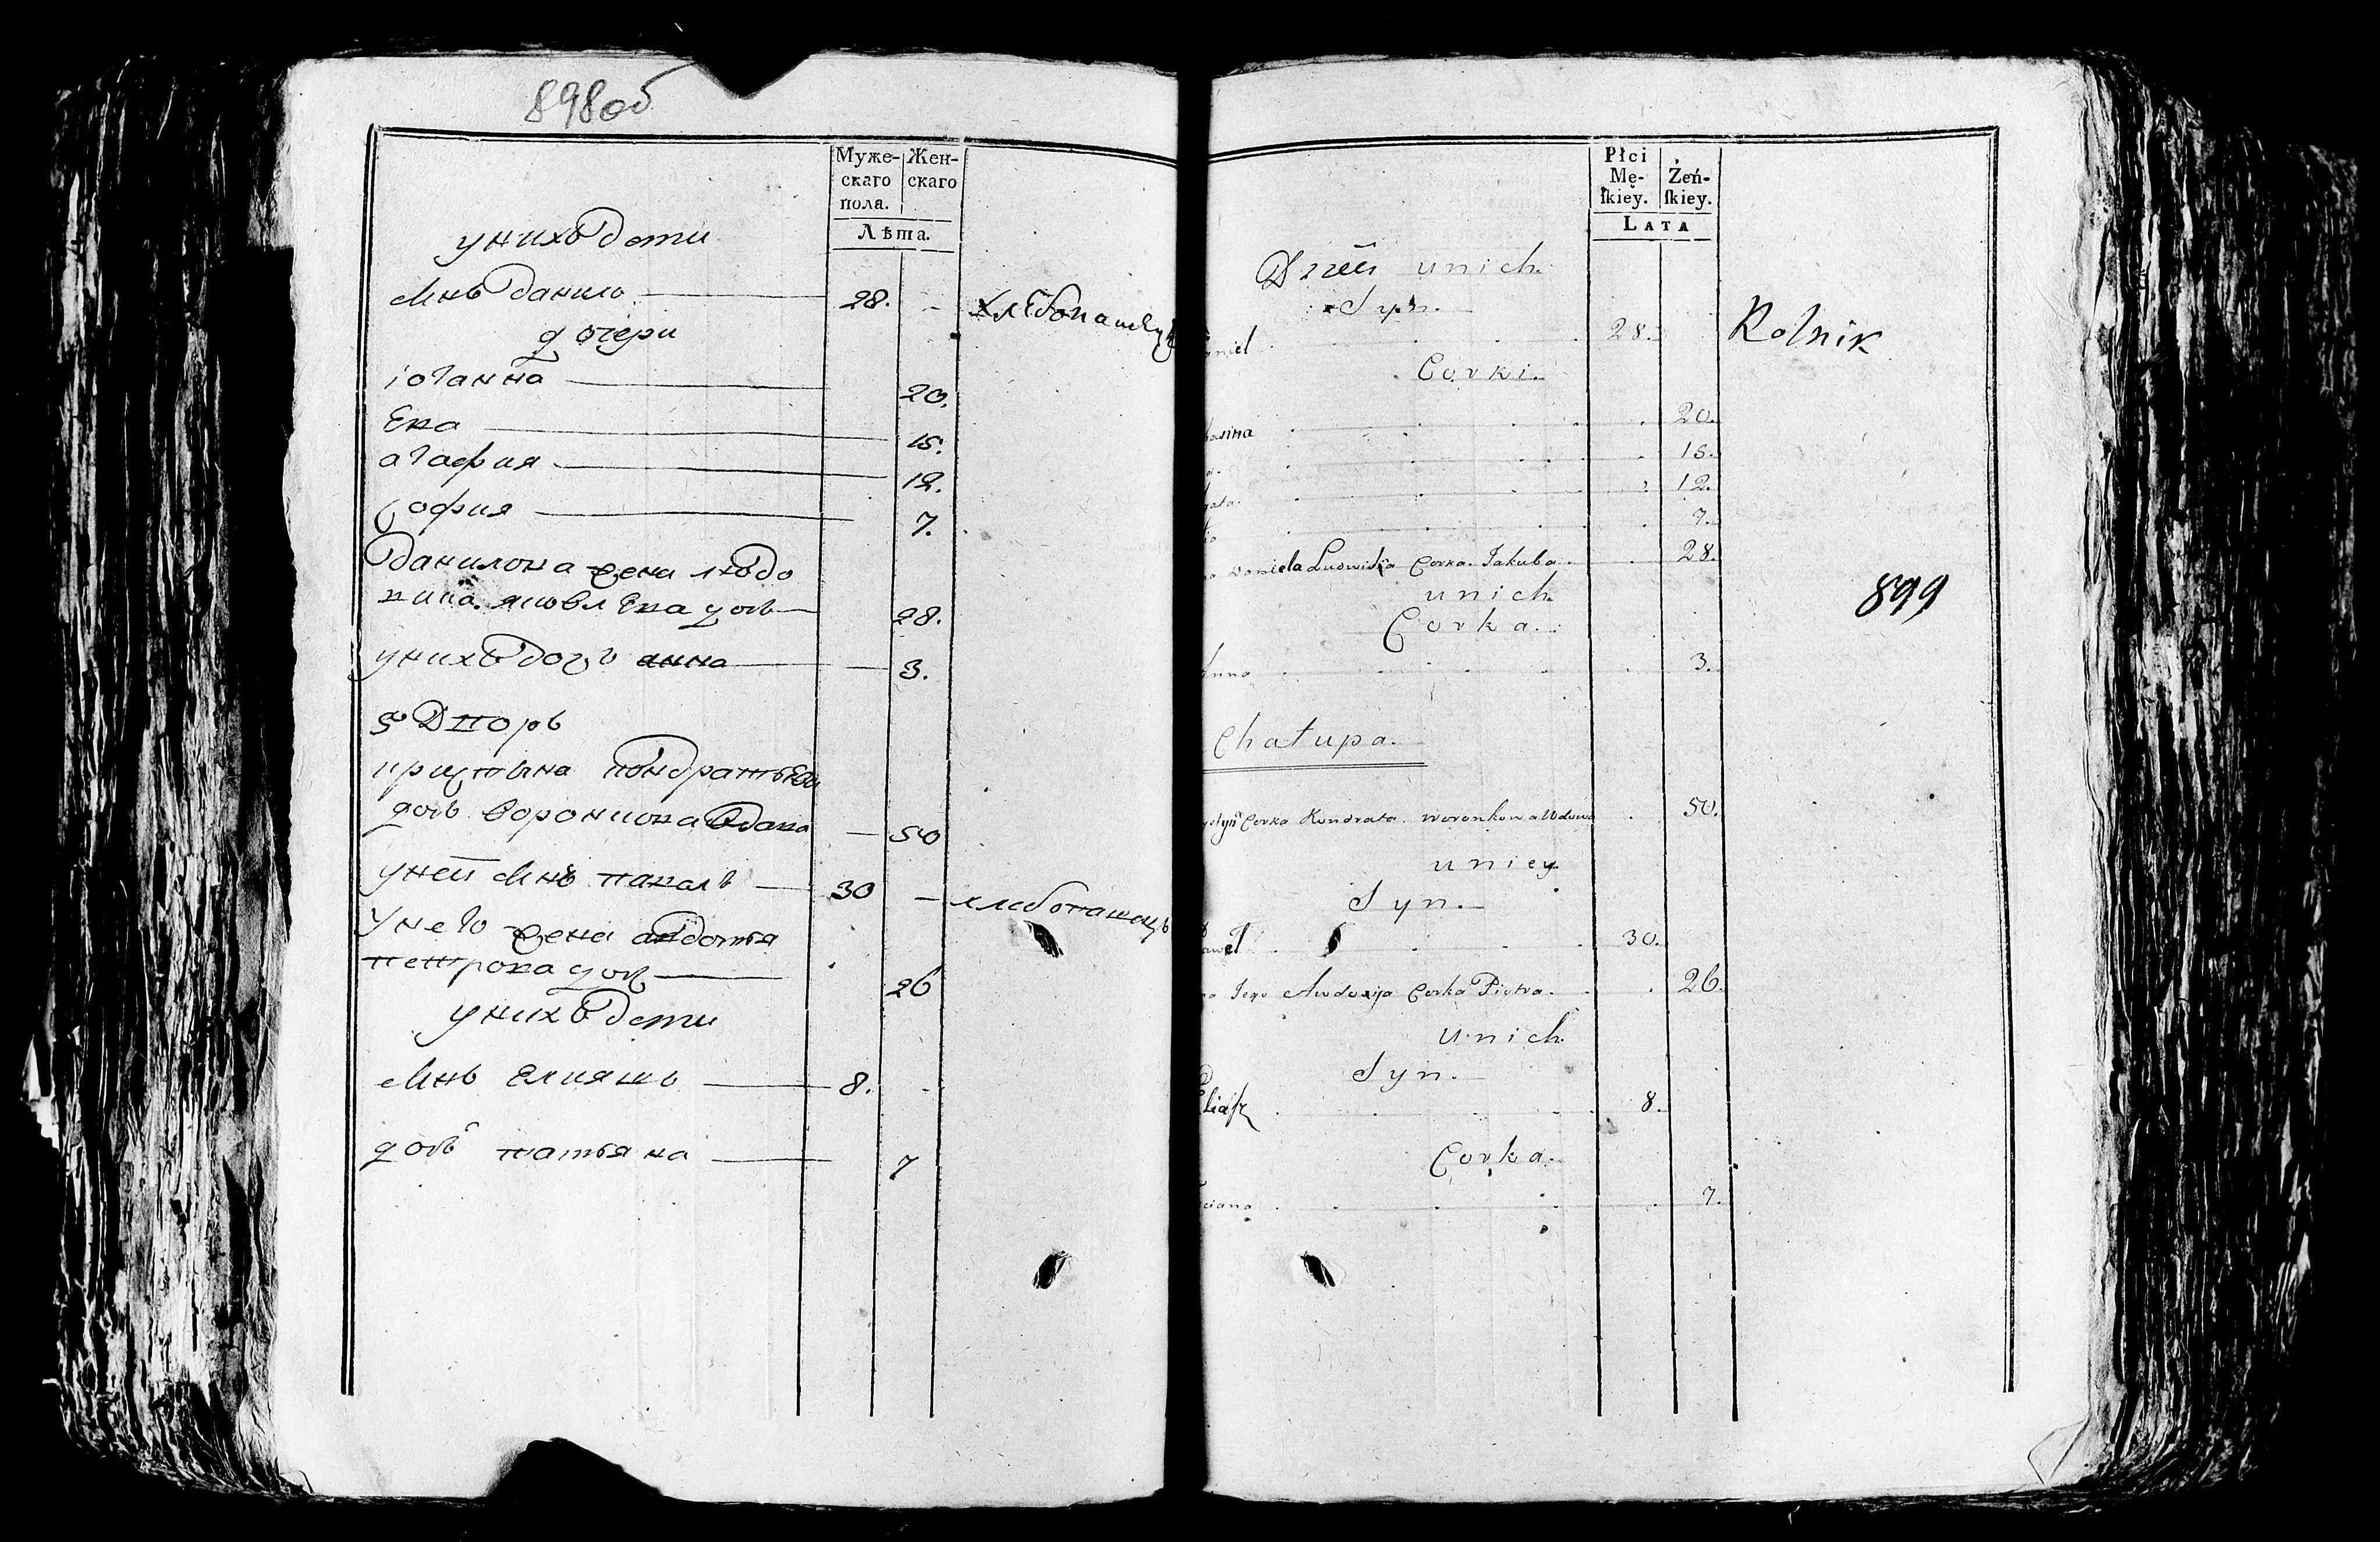 898об
Муже-
скаго
пола.
Жен-
скаго
Лѣта.
унихъ дети
сынъ данило 28. - хлебопашец
дочери
иоганна 20.
Ева 15.
агафия 12.
София 7.
данилова жена людо
вика яковлева дочь 28.
унихъ дочь анна 3.
5й Дворъ
кристына кондратьева
дочь воронкова вдова - 50
уней сынъ павалъ 30 - хлебопашецъ
Унего жена авдотья
петрова дочь 26
унихъ дети
сынъ елияшъ 8. -
дочь татьяна 7
Płci
Mę-
ſkiey.
Żeń-
ſkiey.
LATA
unich.
Syn.
aniel 28. Rolnik
Corki.
20.
15.
gata 12.
7.
Daniela Ludwika Corka Jakuba. 28.
unich. 899
Corka.
Anna 3.
Chałupa.
Corka Kondrata Woronkowa Wdowa 50.
uniey
Syn.
Paweł 30.
Jego Awdosija Corka Piotra. 26.
unich.
Syn.
Eliaſz 8.
Corka.
ciana 7.